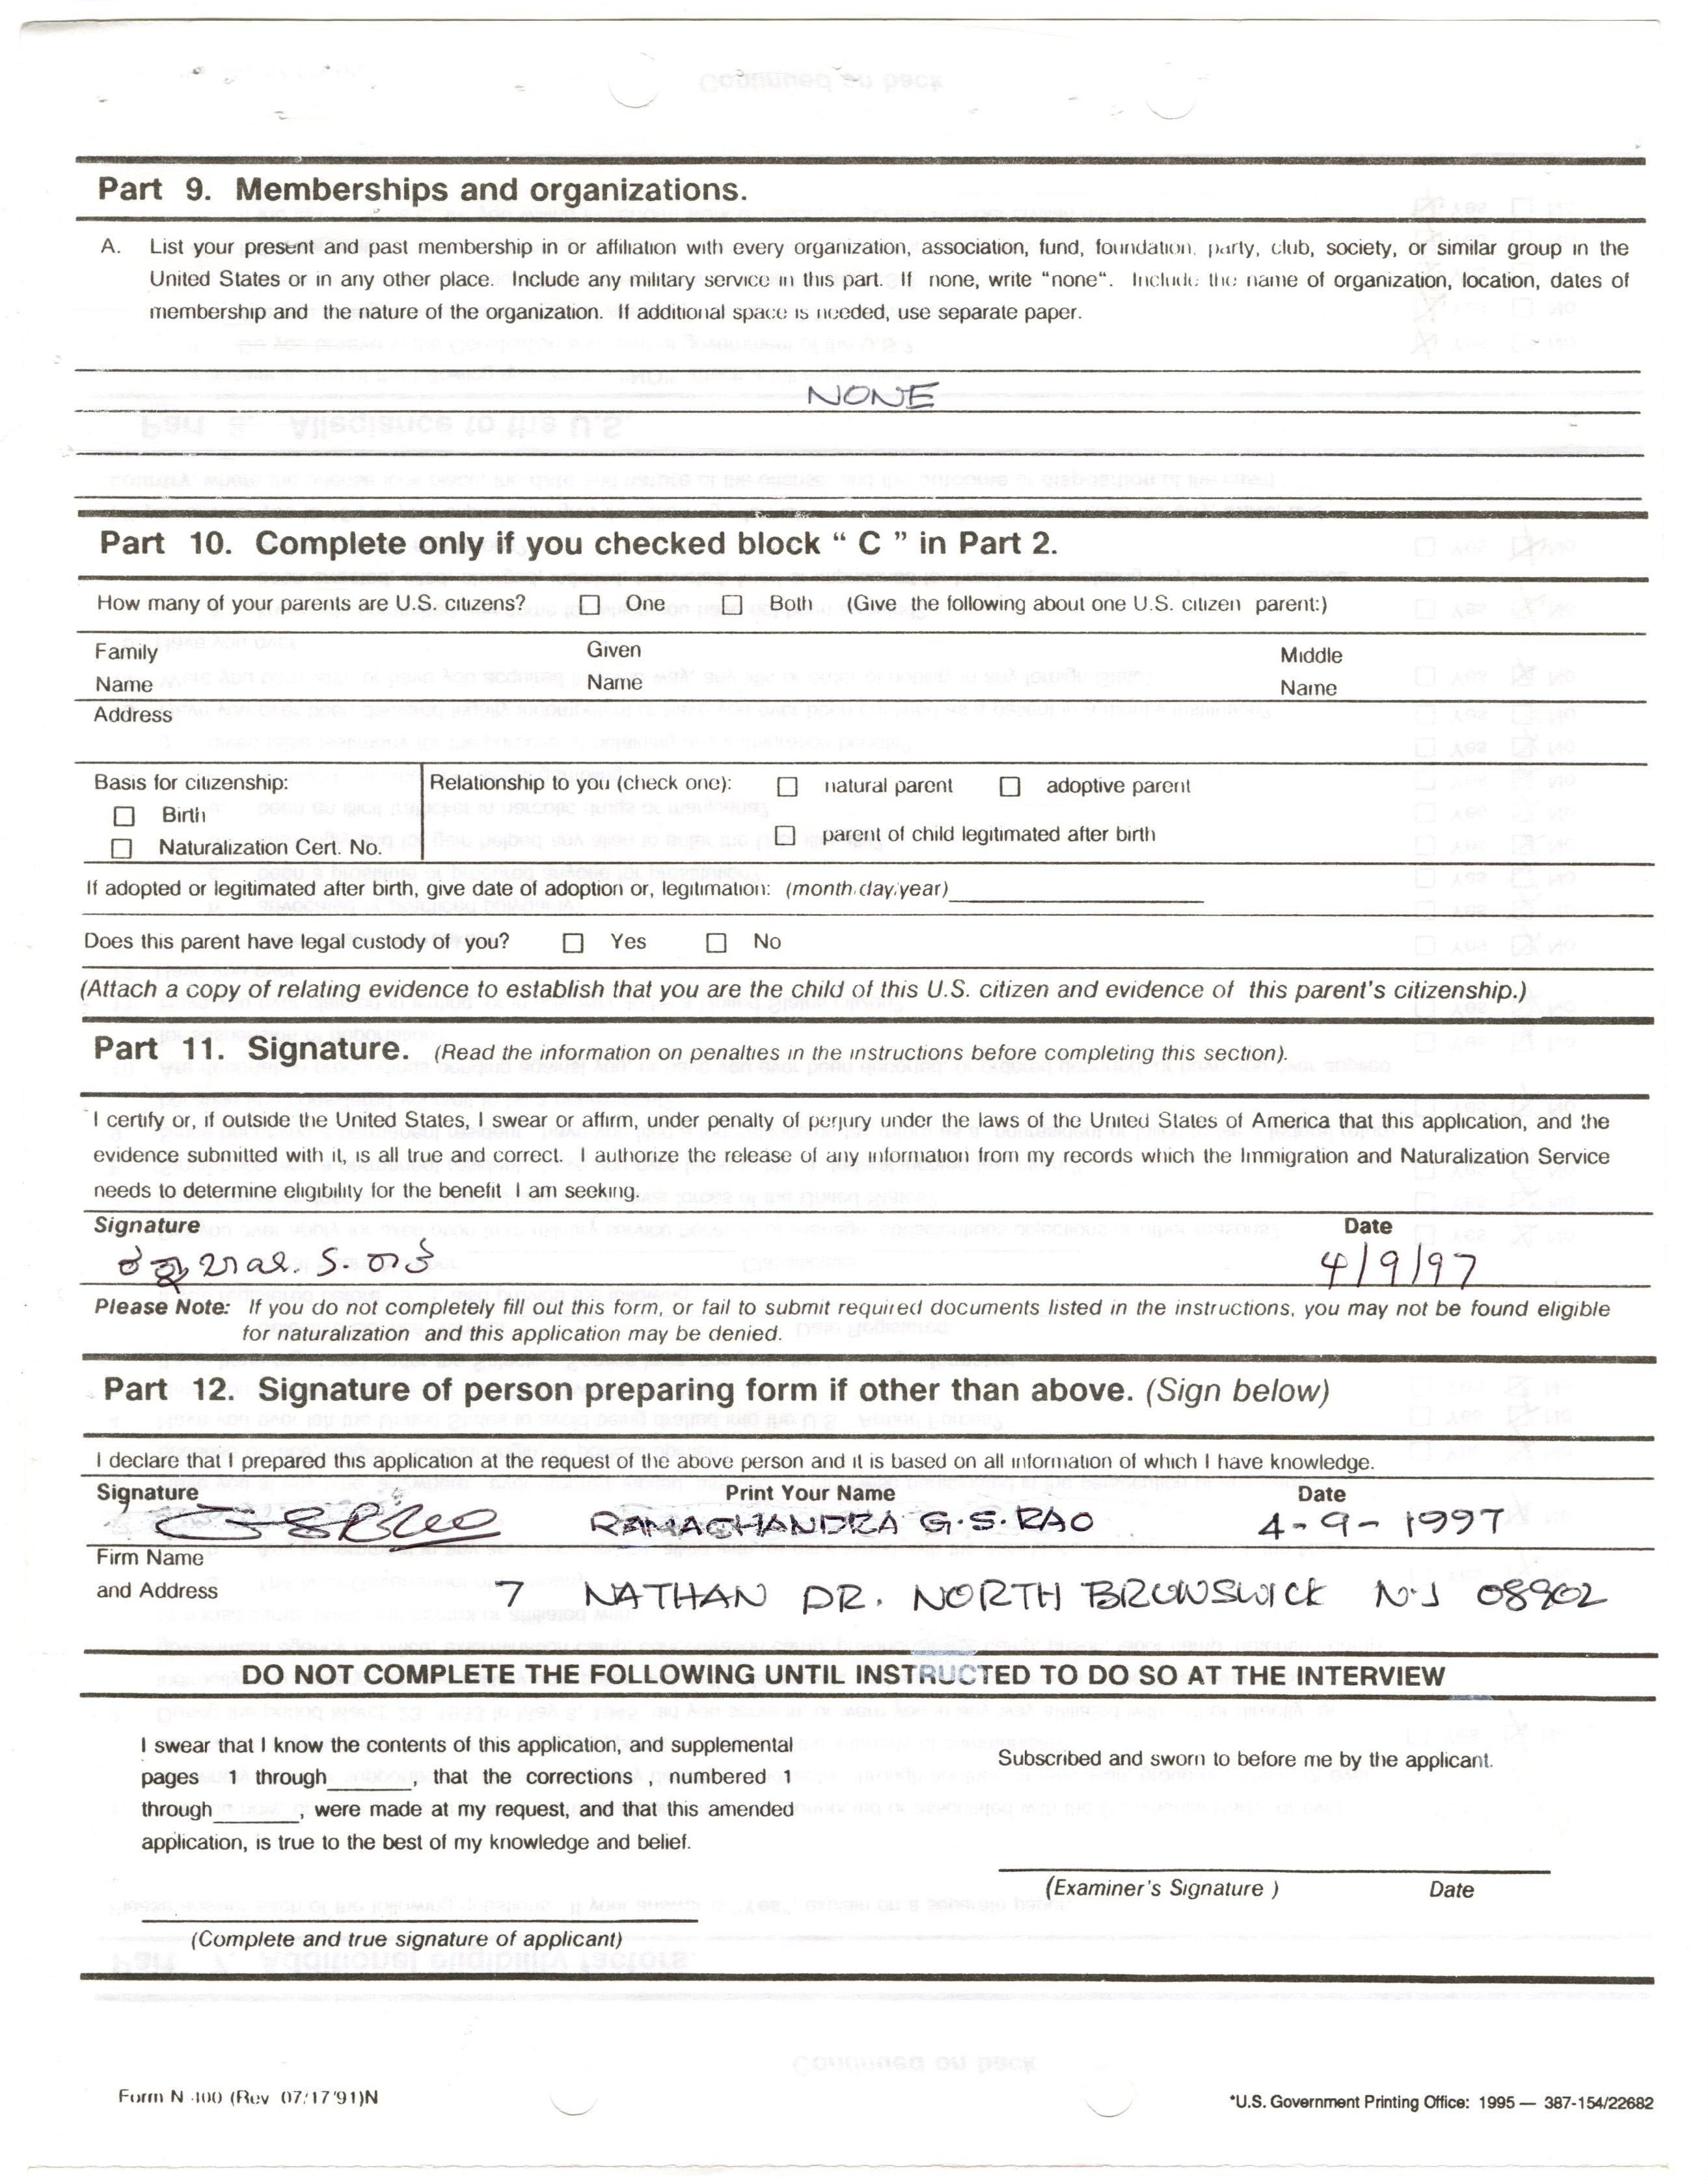 Part 9. Memberships and organizations.
A. List your present and past membership in or affiliation with every organization, association, fund, foundation, party, club, society, or similar group in the
United States or in any other place. Include any military service in this part. If none, write "none“. Include the name of organization, location, dates of
membership and the nature of the organization. If additional space is needed, use separate paper.
NONE
Part 10. Complete only if you checked block “ C ” in Part 2.
How many of your parents are U.S. citizens? ☐ One ☐ Both (Give the following about one U.S. citizen parent:)
Family Name Given Name Middle Name
Address
Basis for citizenship: Relationship to you (check one): ☐ natural parent ☐ adoptive parent
☐ Birth
☐ parent of child legitimated after birth
☐ Naturalization Cert. No.
If adopted or legitimated after birth, give date of adoption or, legitimation: (month/day/year)
Does this parent have legal custody of you? ☐ Yes ☐ No
(Attach a copy of relating evidence to establish that you are the child of this U.S. citizen and evidence of this parent's citizenship.)
Part 11. Signature. (Read the information on penalties in the instructions before completing this section).
I certify or, if outside the United States, I swear or affirm, under penalty of perjury under the laws of the United States of America that this application, and the
evidence submitted with it, is all true and correct. I authorize the release of any information from my records which the Immigration and Naturalization Service
needs to determine eligibility for the benefit I am seeking.
Signature Date
4/9/97
Please Note: If you do not completely fill out this form, or fail to submit required documents listed in the instructions, you may not be found eligible
for naturalization and this application may be denied.
Part 12. Signature of person preparing form if other than above. (Sign below)
I declare that I prepared this application at the request of the above person and it is based on all information of which I have knowledge.
Signature Print Your Name Date
RAMACHANDRA G.S. RAO 4-9-1997
Firm Name
and Address 7 NATHAN DR. NORTH BRUNSWICK N.J 08902
DO NOT COMPLETE THE FOLLOWING UNTIL INSTRUCTED TO DO SO AT THE INTERVIEW
I swear that I know the contents of this application, and supplemental
pages 1 through_______, that the corrections , numbered 1
through_______, were made at my request, and that this amended
application, is true to the best of my knowledge and belief.
Subscribed and sworn to before me by the applicant.
(Examiner's Signature ) Date
(Complete and true signature of applicant)
Form N-400 (Rev 07/17/91)N
*U.S. Government Printing Office: 1995 — 387-154/22682